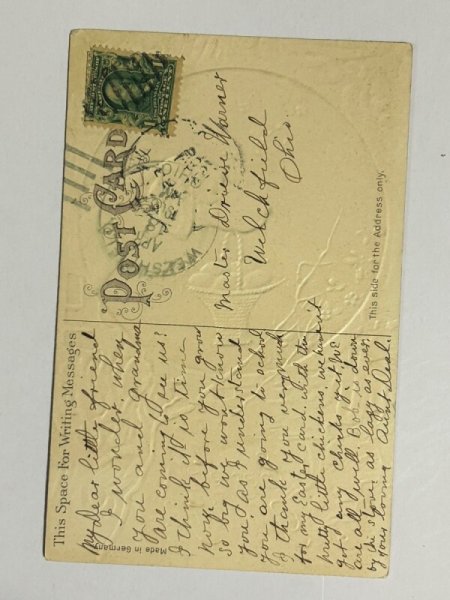 This Space For Writing Messages
POST CARD
This side for the Address only.
Made in Germany
My dear little friend
I wonder when
you and Grandma
are coming to see us?
I think it is time
now before you grow
so big we wont know
you. as I understand
you are going to school
I thank you very much
for my Easter card with the
pretty little chickens, we havent
got any chicks yet. We
are all well Bob is down
by the stove as lazy as ever.
your loving Aunt
Master Warner
Welchfield
Ohio.